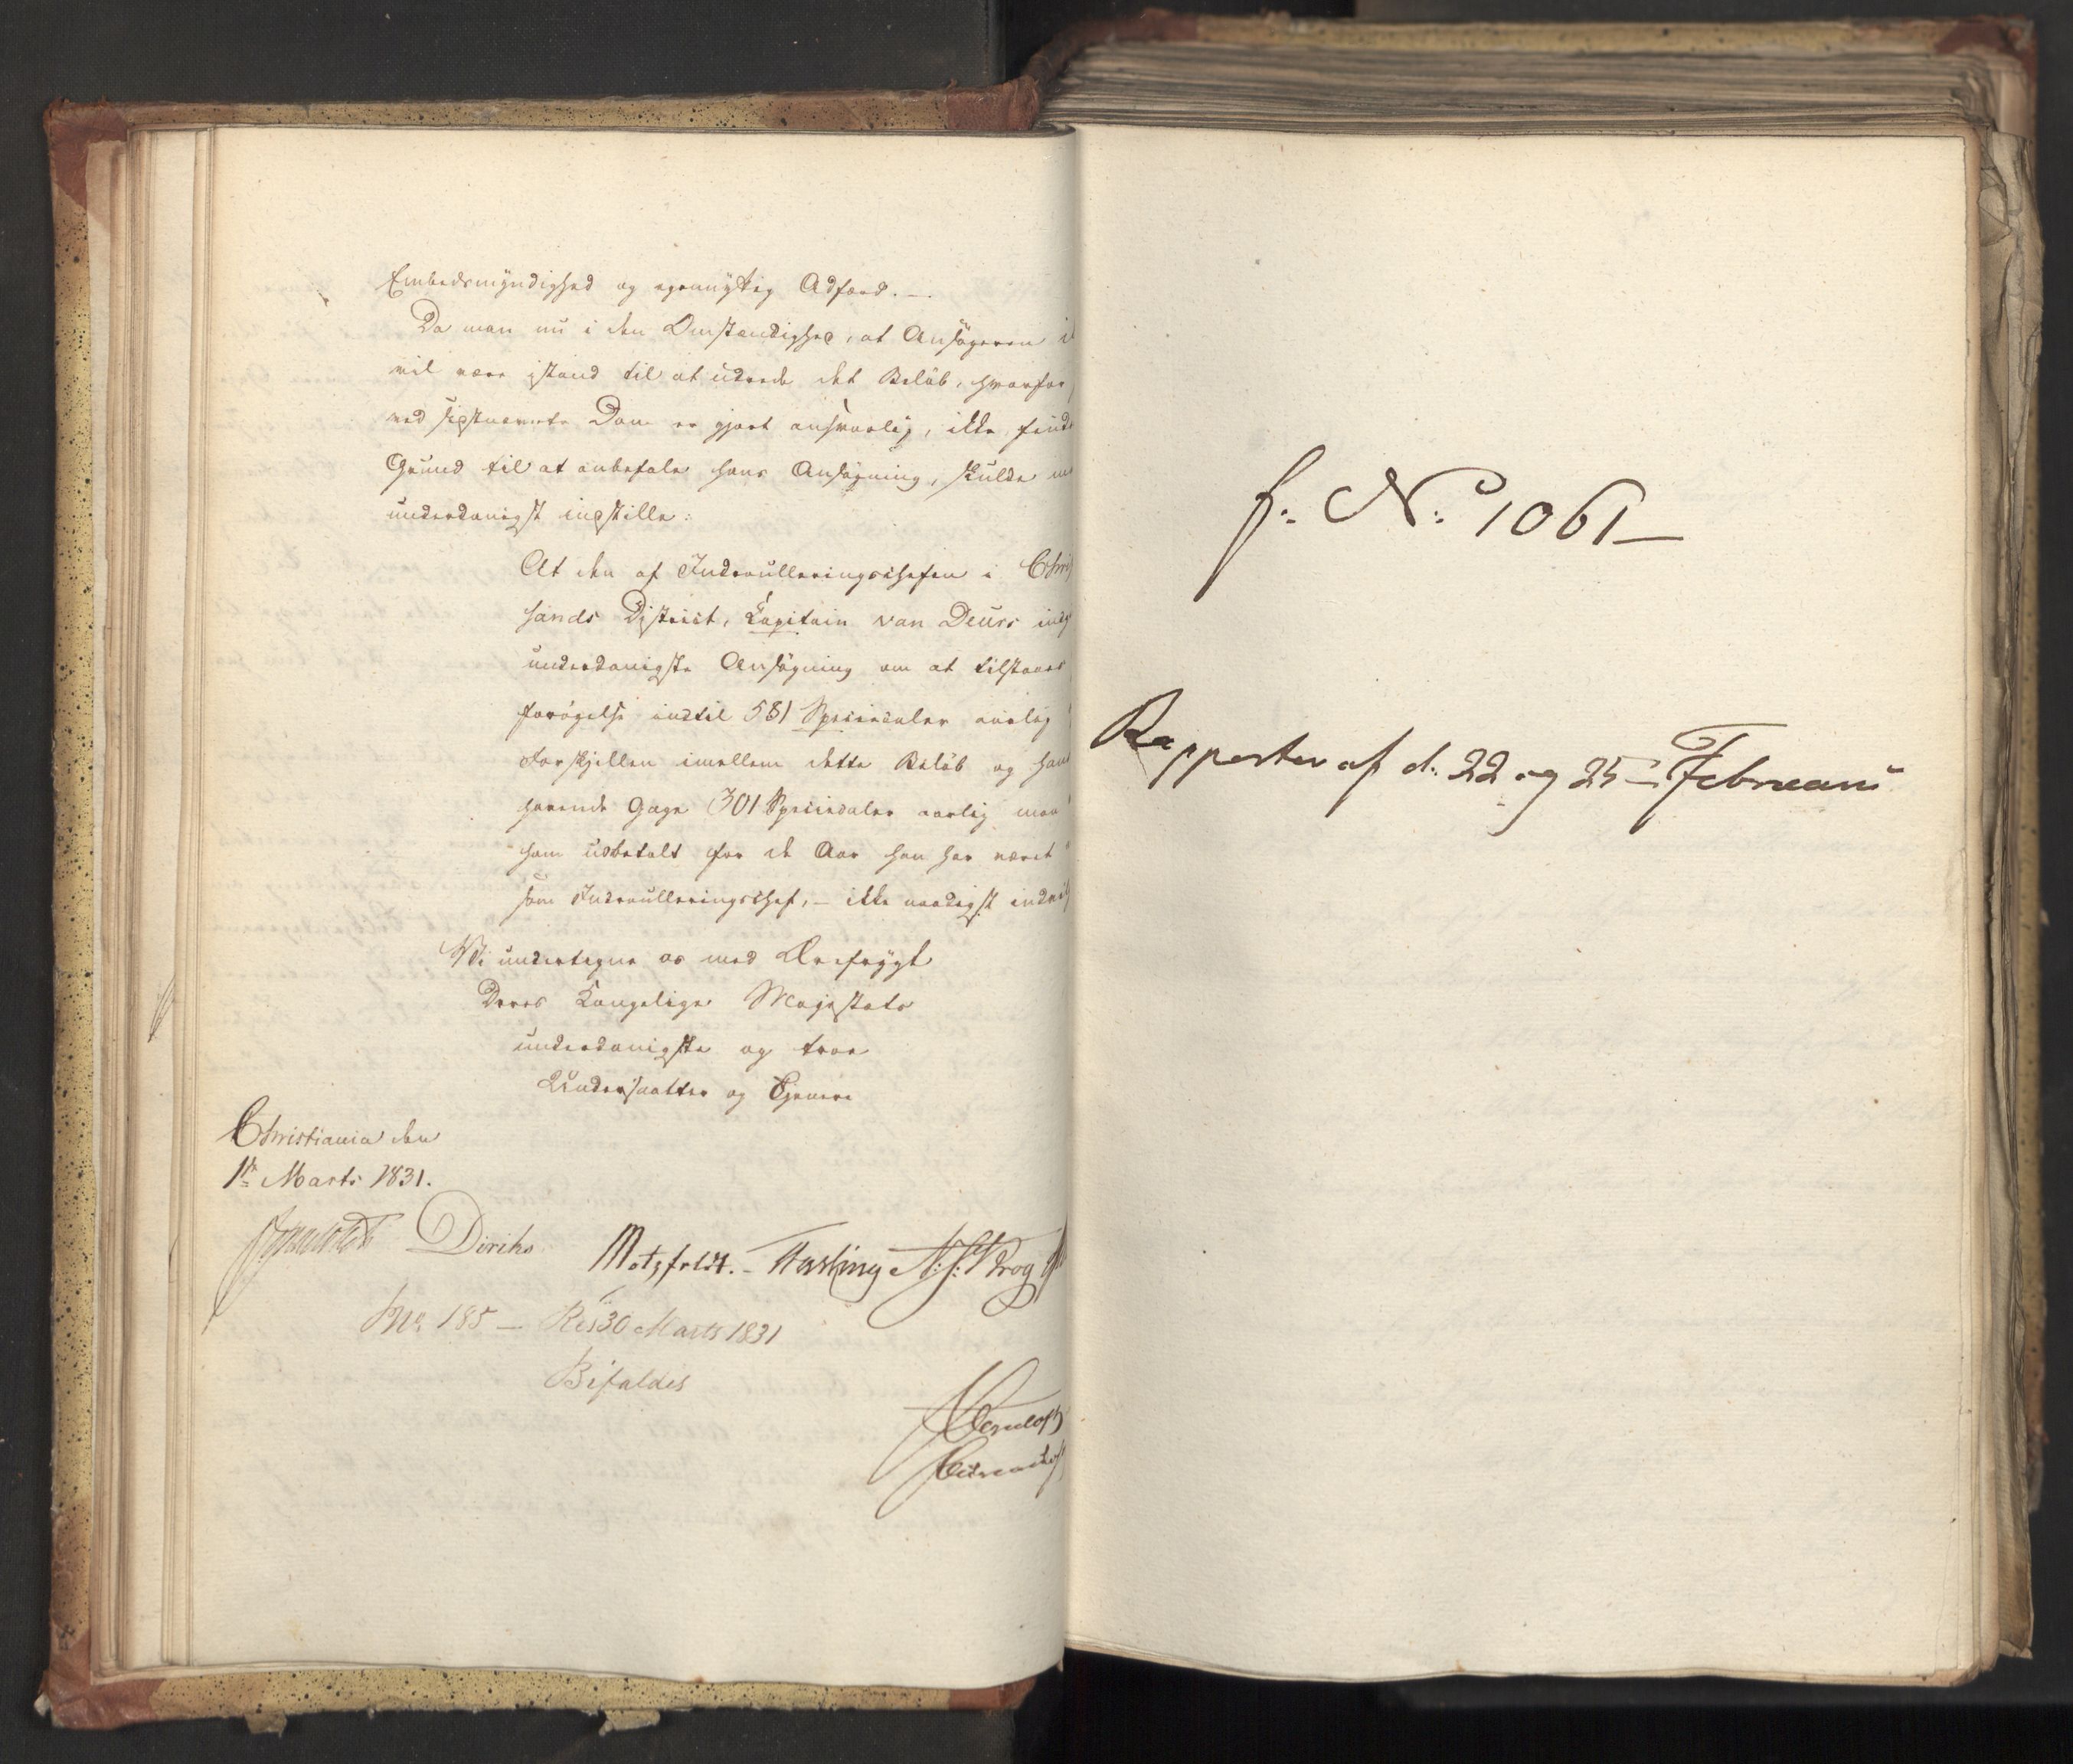 Embedsmyndighed og egennyttig Adfærd. —
Da man nu i den Omstændighed, at Ansøgeren
vil være istand til at udrede det Beløb, hvorfor
ved sidstnævnte Dom er gjort ansvarlig, ikke finde
Grund til at anbefale hans Ansøgning, skulde
underdanigst indstille:
At den af Indrulleringschefen i Christ
sands District, Capitain van Deurs indg
underdanigste Ansøgning om at tilstaaes
forøgelse indtil 581 Speciedaler aarlig
Forskjellen imellem dette Beløb og hans
havende Gage (301 Speciedaler aarlig maa
ham udbetalt for de Aar han har været
som Indrulleringschef, — ikke naadigst indvil
Vi undertegne os med Ærefrygt
Deres Kongelige Majestæts
underdanigste og troe
Undersaatter og Tjenere
Christiania den
1ste Marts 1831.
Diriks Motzfeldt. — Fasting N: J: Krog
No 185 — Res 30 Marts 1831
Bifaldes
f. No: 1061 —
Rapporter af d: 22 og 25 — Februari